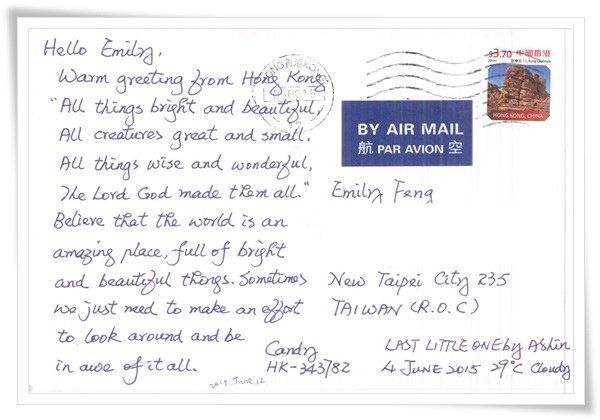 Hello Emily,
Warm greeting from Hong Kong
"All things bright and beautiful,
All creatures great and small,
All things wise and wonderful,
The Lord God made them all."
Believe that the world is an
amazing place, full of bright
and beautiful things. Sometimes
we just need to make an effort
to look around and be
in awe of it all.
Candy
HK-343782
$3.70 中國香港
HONG KONG, CHINA
HONG KONG
BY AIR MAIL
航 PAR AVION 空
Emily Feng
New Taipei City 235
TAIWAN (R.O.C)
LAST LITTLE ONE by Ashin
4 JUNE 2015 29°C Cloudy